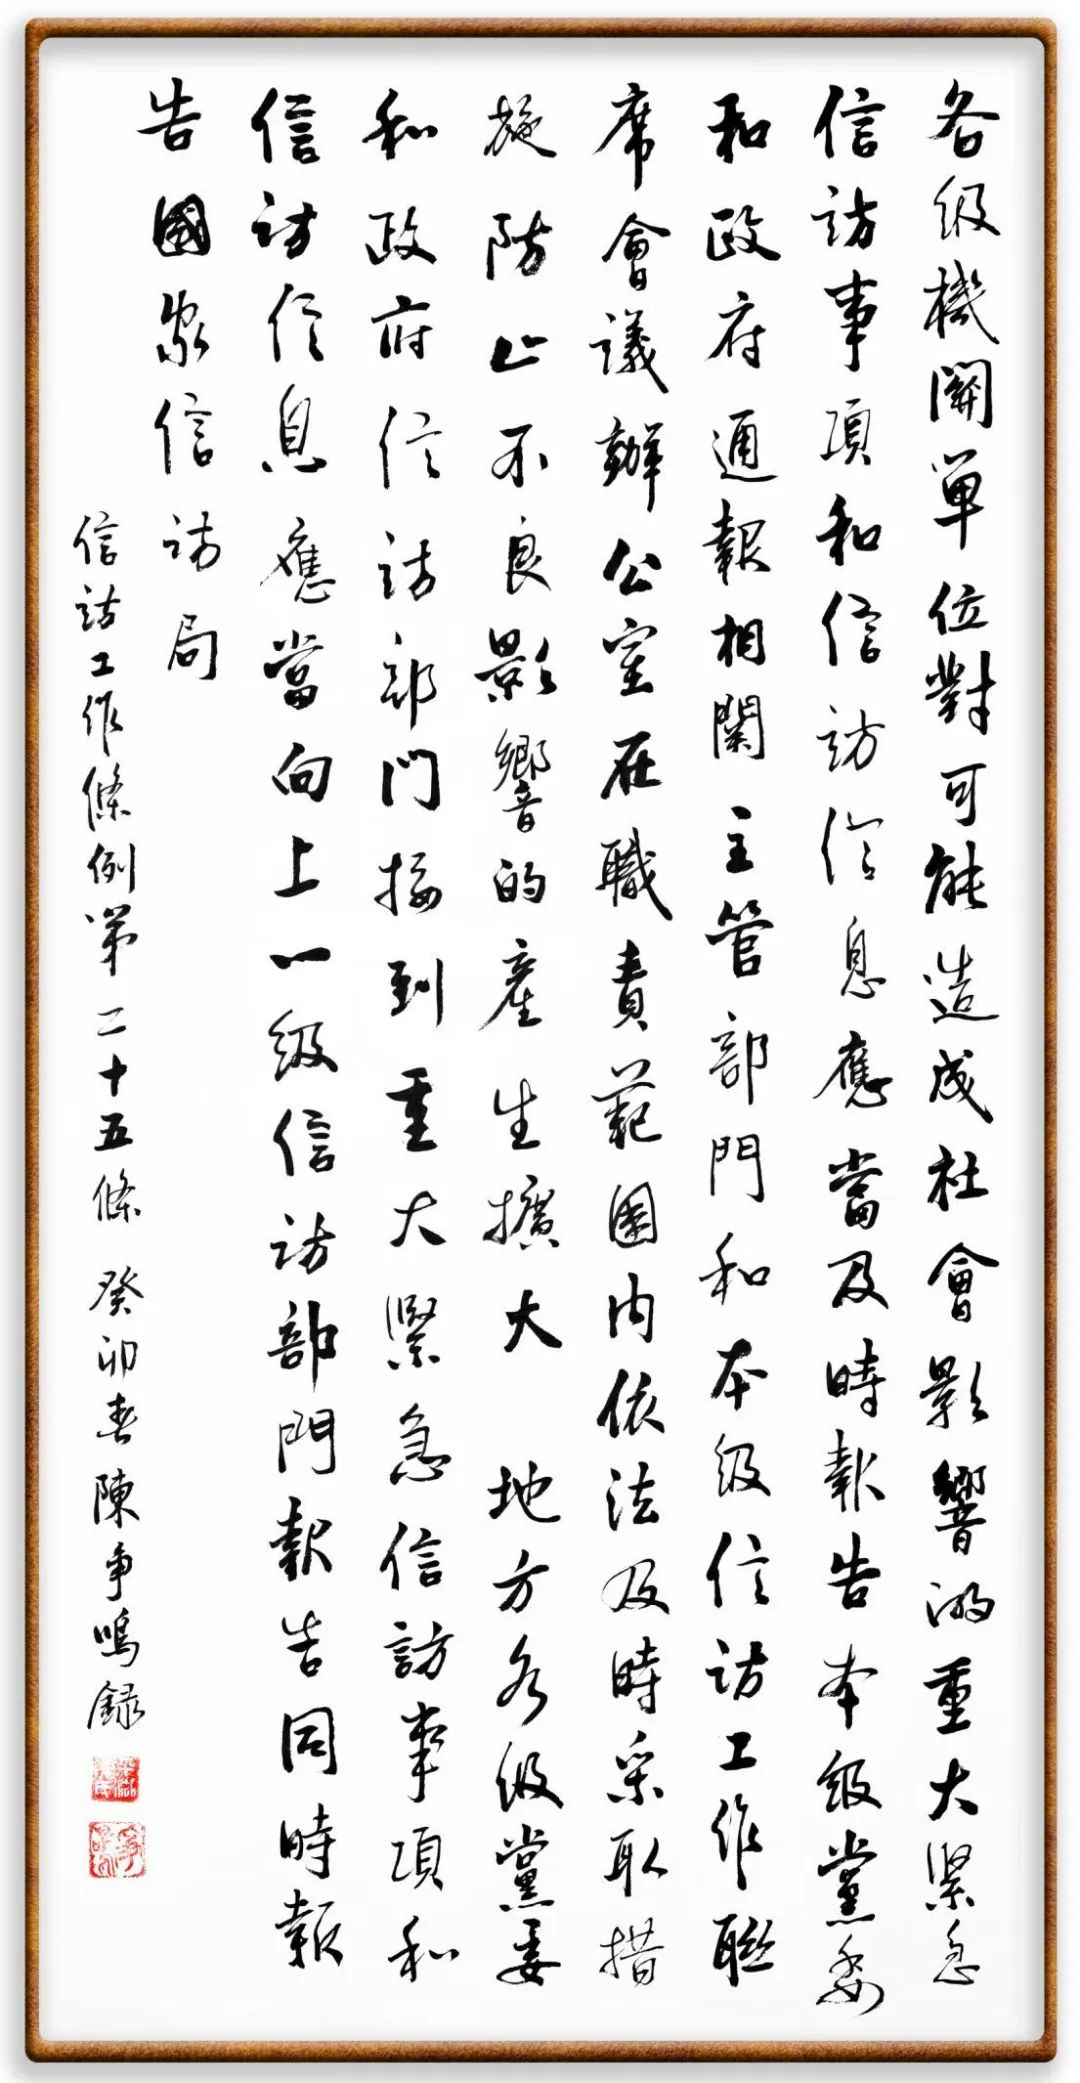 各級機關單位對可能造成社會影響的重大緊急
信訪事項和信訪信息應當及時報告本級黨委
和政府通報相關主管部門和本級信訪工作聯
席會議辦公室在職責範圍内依法及時采取措
施防止不良影響的產生擴大地方各級黨委
和政府信訪部門接到重大緊急信訪事項和
信訪信息應當向上一級信訪部門報告同時報
告國家信訪局
信訪工作條例第二十五條 癸卯春陳争鳴録